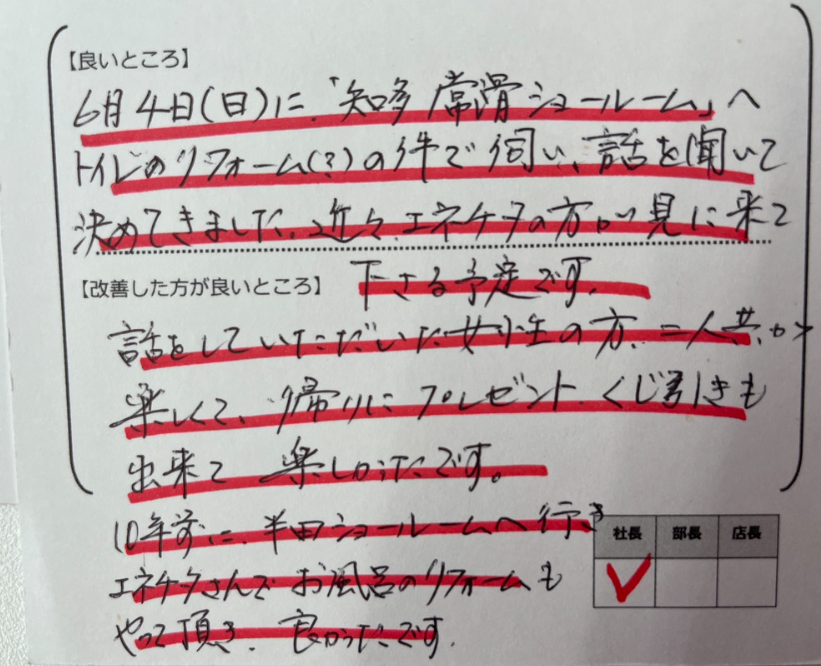 【良いところ】
6月4日(日)に、「知多 常滑ショールーム」へ
トイレのリフォーム(?)の件で伺い、話を聞いて
決めてきました。近々、エネチタの方が見に来て
【改善した方が良いところ】 下さる予定です。
話をしていただいた女性の方、二人共
楽しくて、帰りに プレゼント、くじ引きも
出来て 楽しかったです。
10年前に、半田ショールームへ行き
エネチタさんで お風呂のリフォームも
やって頂き、良かったです。
社長 部長 店長